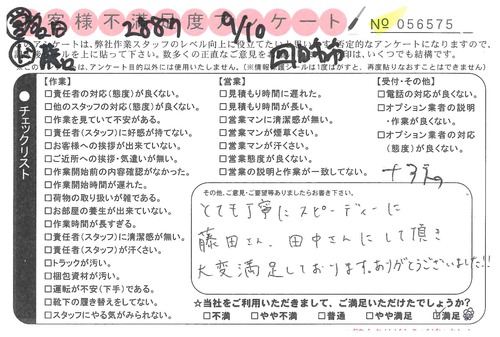 お客様不満度アンケート
No 056575
2887 9/10
このアンケートは、弊社作業スタッフのレベル向上に役立てたい
否定的なアンケートになりますので、
数多くの正直なご意見を
印は、いくつでも結構です。
アンケート目的以外には使用いたしません。(※情報保護シールは1度はがすと、再度貼りなおすことはできません)
チェックリスト
【作業】
□責任者の対応(態度)が良くない。
□他のスタッフの対応(態度)が良くない。
□作業を見ていて不安がある。
□責任者(スタッフ)に好感が持てない。
□お客様への挨拶が出来ていない。
□ご近所への挨拶・気遣いが無い。
□作業開始前の内容確認がなかった。
□作業開始時間が遅れた。
□荷物の取り扱いが雑である。
□お部屋の養生が出来ていない。
□作業時間が長すぎる。
□責任者(スタッフ)に清潔感が無い。
□責任者(スタッフ)が汗くさい。
□トラックが汚い。
□梱包資材が汚い。
□運転が不安(下手)である。
□靴下の履き替えをしてない。
□スタッフにやる気がみられない。
【営業】
□見積もり時間に遅れた。
□見積もり時間が長い。
□営業マンに清潔感が無い。
□営業マンが煙草くさい。
□営業マンが汗くさい。
□営業態度が良くない。
□営業の説明と作業が一致してない。
【受付・その他】
□電話の対応が良くない。
□オプション業者の説明・作業が良くない。
□オプション業者の対応(態度)が良くない。
その他、ご意見・ご要望等ありましたらお書き下さい。
とても丁寧にスピーディーに
藤田さん、田中さんにして頂き
大変満足しております。ありがとうございました!!
☆当社をご利用いただきまして、ご満足いただけたでしょうか?
□不満 □やや不満 □普通 □やや満足 □満足